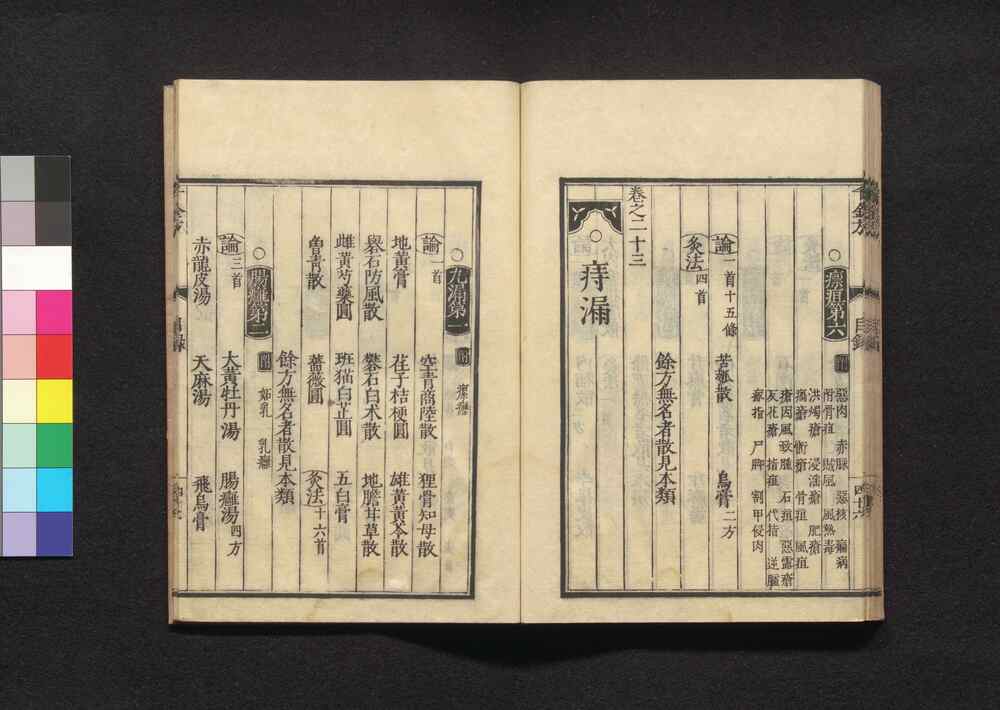 ○瘭疽第六 附
惡肉 赤脉 惡核 瘑病
附骨疽 賊風 風熱毒
洪燭瘡 浸淫瘡 肥瘡
瘑瘡 䯒瘡 骨疽 風疽
瘡因風致腫 石疽 惡露瘡
灰花瘡 㾦疽 代指 逆臚
㾦指 尸脚 割甲侵肉
論一首十五條 苦瓠散 烏膏二方
灸法四首
餘方無名者散見本類
卷之二十三
○痔漏
○九漏第一 附 瘰癧
論一首 空青商陸散 狸骨知母散
地黃膏 荏子桔梗圓 雄黃黃芩散
礜石防風散 礬石白朮散 地膽甘草散
雌黃芍藥圓 班猫白芷圓 五白膏
曾青散 薔薇圓 灸法十六首
餘方無名者散見本類
○腸癰第二 附 妬乳 乳癰
論三首 大黃牡丹湯 腸癰湯四方
赤龍皮湯 天麻湯 飛烏膏
千金方 目錄